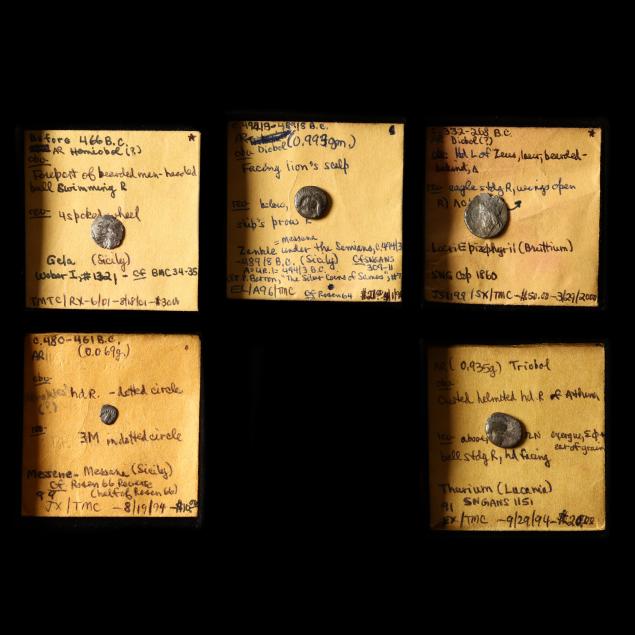 Before 466 B.C. *
AR Hemiobol (?)
obv
Forepart of bearded man-headed
bull swimming R
rev 4 spoked wheel
Gela (Sicily)
Weber I, #1321 - cf BMC 34-35
TMTC/RX-6/01-8/18/01-$30.00
Diobol (0.993gm.)
obv
Facing lion's scalp
rev below,
ship's prow L
= Messana
Zankle under the Samians, 494/3
-489/8 B.C. (Sicily) cf SNGANS
A=yr. 1=494/3 B.C. 309-11
P. Barron, "The Silver Coins of Samos",
EL/A96/TMC cf Rosen 64
332-268 B.C. *
AR Diobol (?)
obv Hd L of Zeus, laur, bearded-
behind,
rev eagle stdg R, wings open
R)
Locri Epizephyrii (Bruttium)
SNG Cop 1860
/SX/TMC-$50.00-3/29/2000
c.480-461 B.C.
AR (0.069g.)
obv
hd R. - dotted circle
(?)
rev
3M in dotted circle
Messene - Messana (Sicily)
cf Rosen 66 Reverse
99 (half of Rosen 66)
JX/TMC - 8/19/94 -
AR (0.935g) Triobol
obv
Crested helmeted hd R of Athena
rev above, exergue,
ear of grain
bull stdg R, hd facing
Thurium (Lucania)
91 SNGANS 1151
EX/TMC -9/29/94-